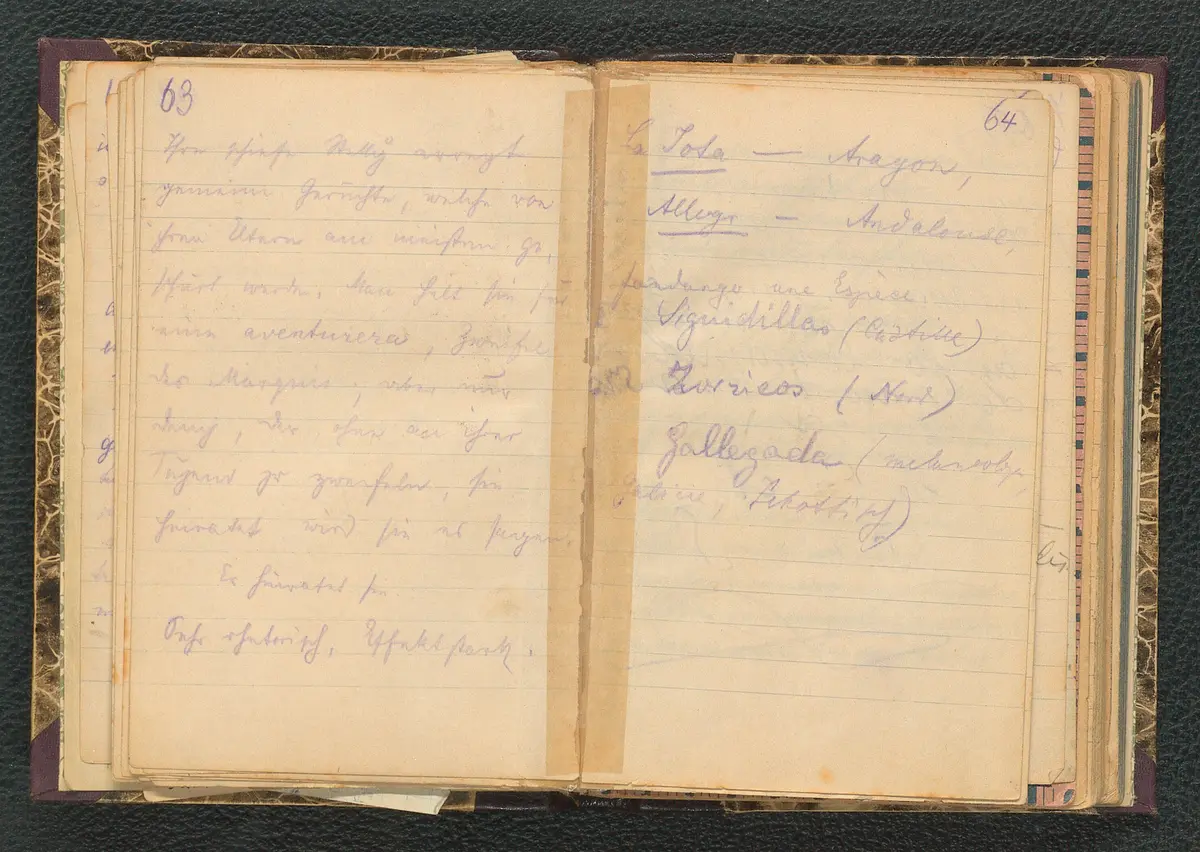 63
Ihre schiefe erregt
gemeine Gerüchte, welche von
ihren Eltern am meisten ge-
schürt werden. Man hält sie für
eine aventurera, Zweifel
der Marquis, aber nur
der ohne an ihrer
Tugend zu zweifeln, sie
heiratet wird sie es sagen.
Er heiratet sie.
Sehr rhetorisch, Effektstark.
64
La Jota — Aragon,
Allegr — Andalouse,
fandango une Espèce
Siguidillas (Castille)
Zorzicos (Nord)
Gallegada (melancolique,
Schottisch)